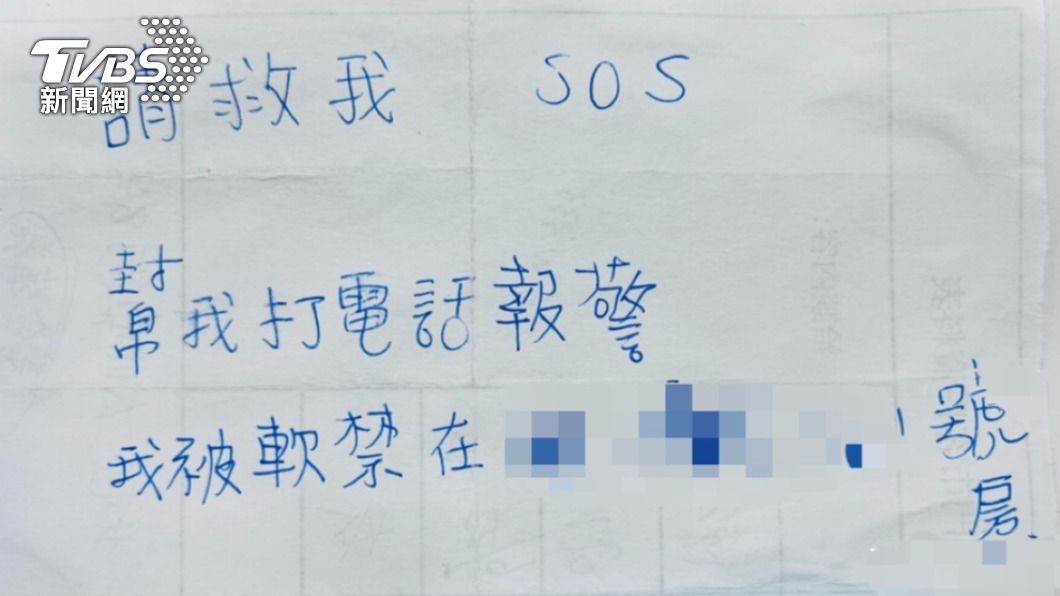 TVBS
新聞網
請救我 SOS
幫我打電話報警
我被軟禁在
號房